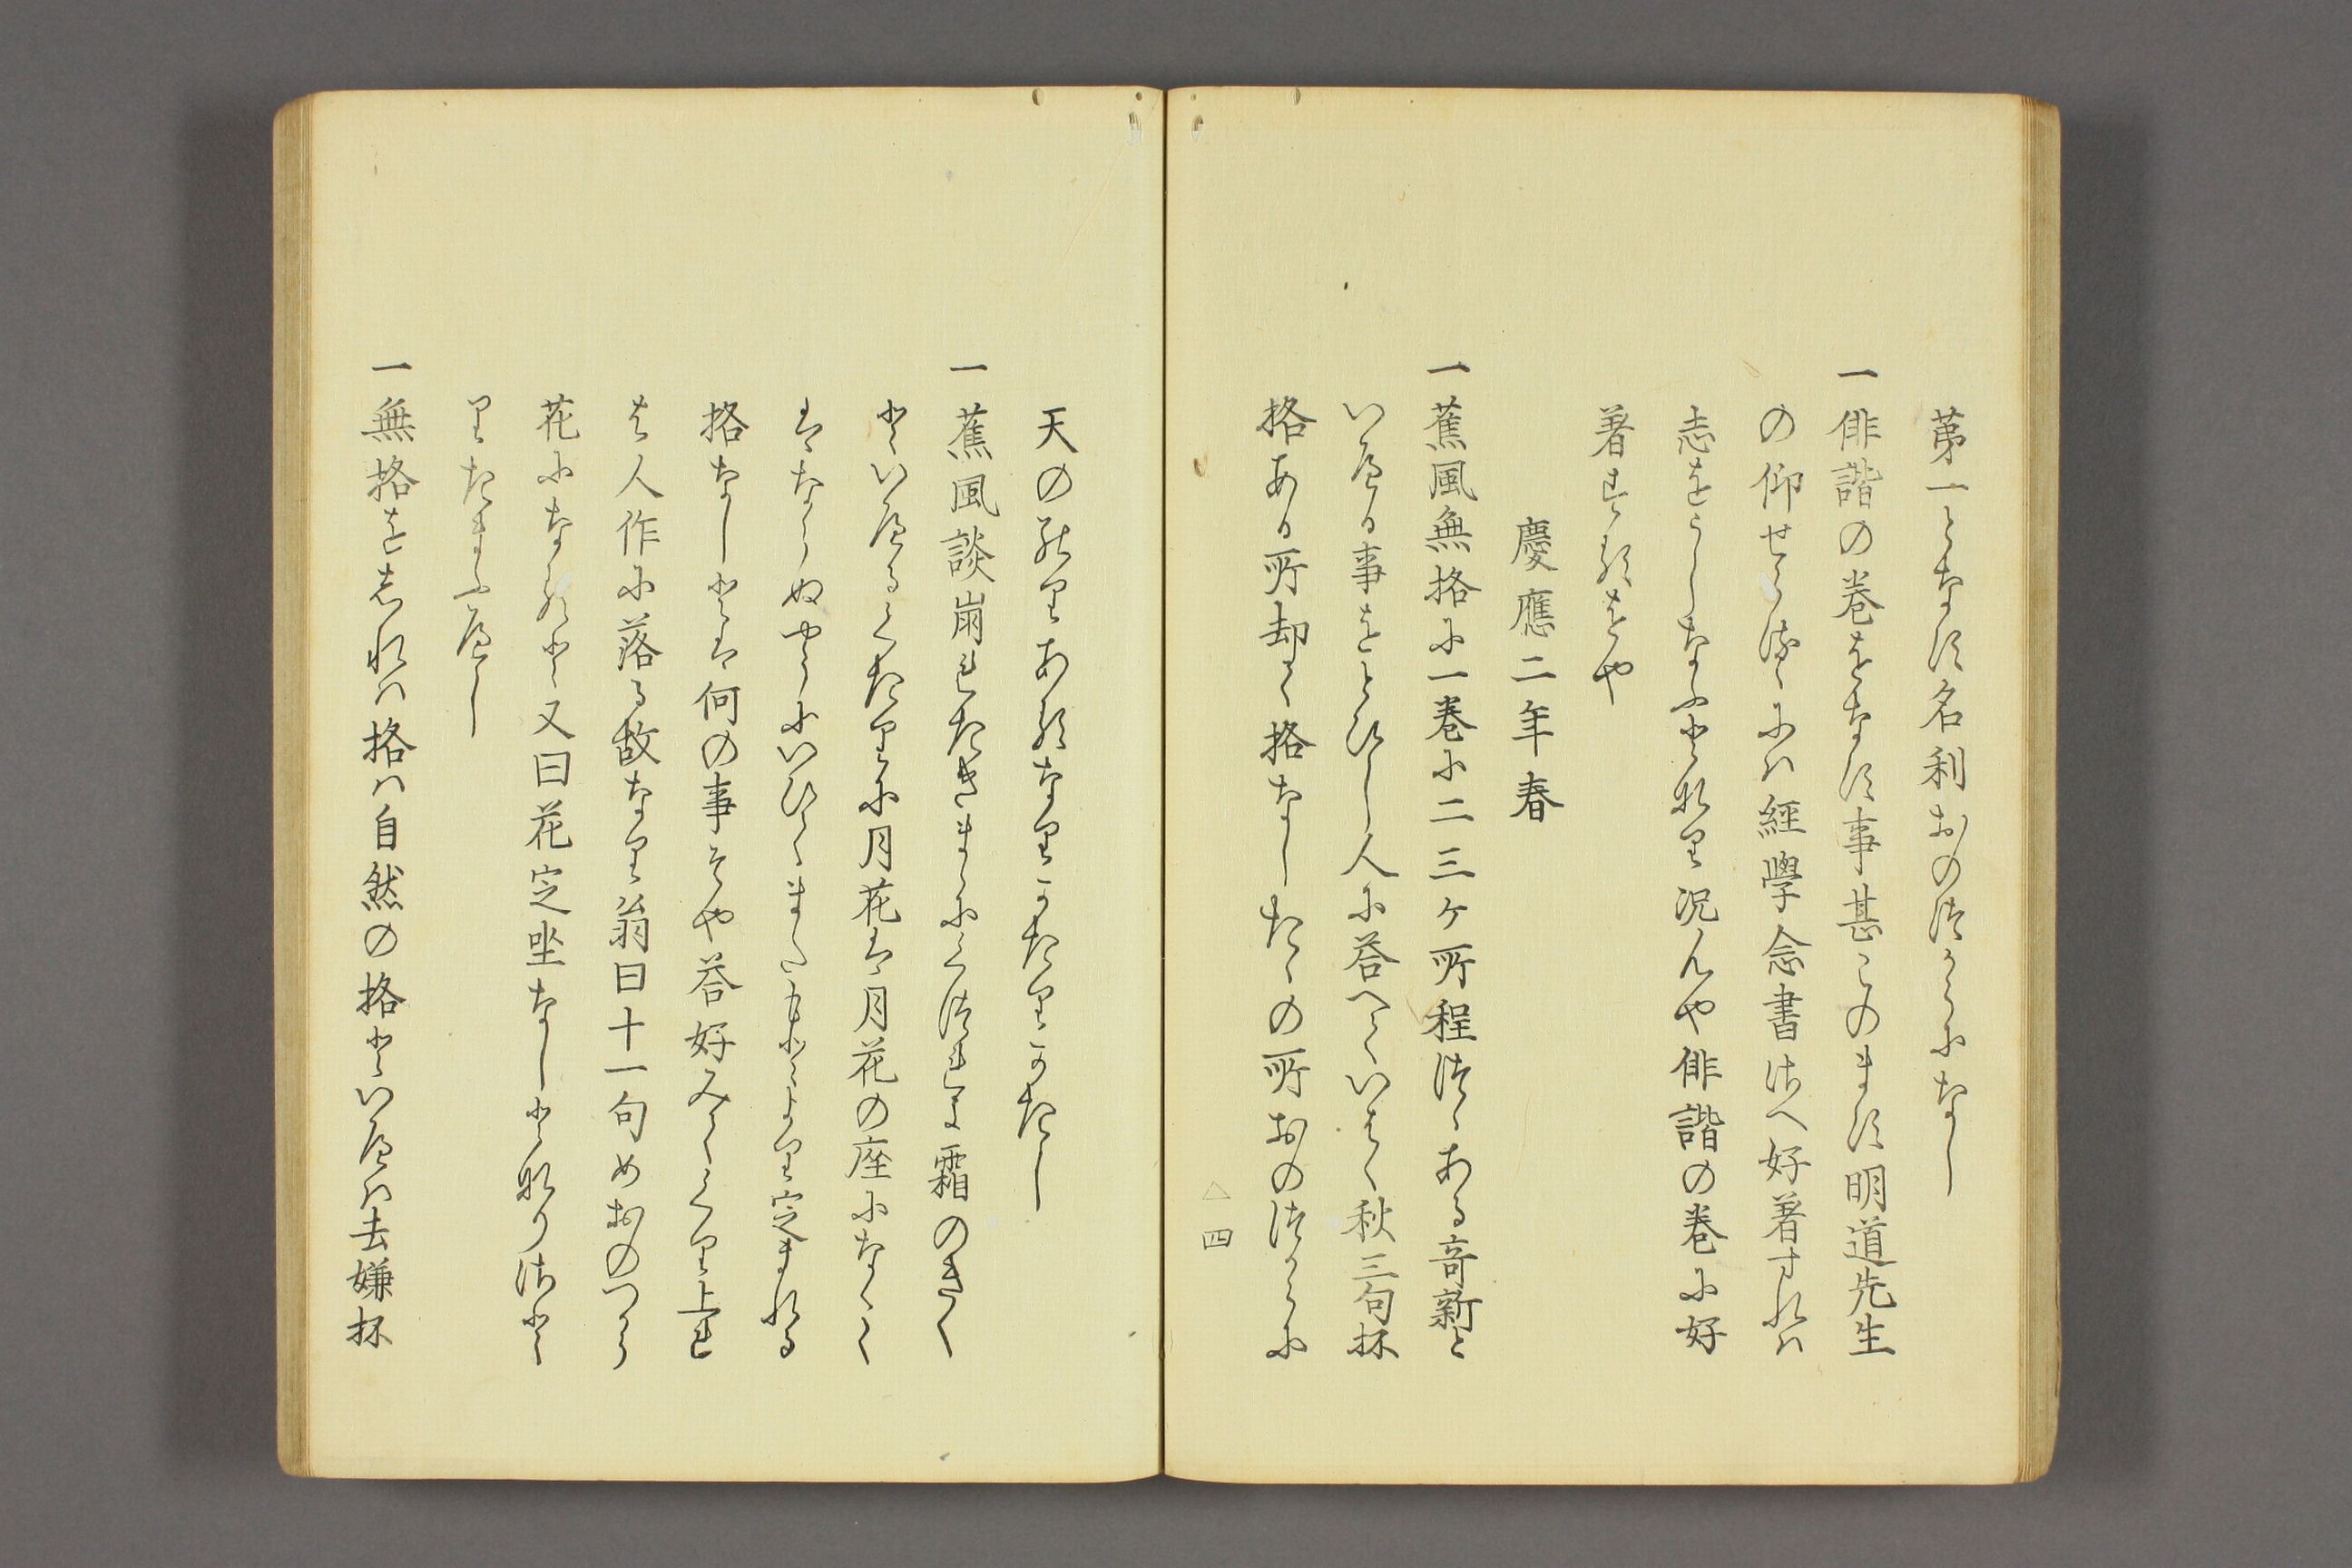 第一となす名利おのつからになし
一俳諧の巻をなす事甚このます明道先生
の仰せられしにハ經學念書法へ好著すれハ
志をうしなふとなり况んや俳諧の巻に好
著するをや
慶應二年春
一蕉風無格に一巻に二三ケ所程つゝある奇新と
いへる事をとひし人に答へていはく秋三句抔
格ある所却て格なしたゝの所おのつからに
△四
天の行りあるなりかたりかたし
一蕉風談崩れたきまゝにくつれて霜のきく
といへるくたりに月花は月花の座になくて
はならぬやうにいひてまたもとより定まれる
格なしとは何の事そや答好みてくり上れ
は人作に落る故なり翁曰十一句めおのつから
花になると又曰花定坐なしとなり法と
りたまふへし
一無格をしれハ格ハ自然の格といへハ去嫌抔